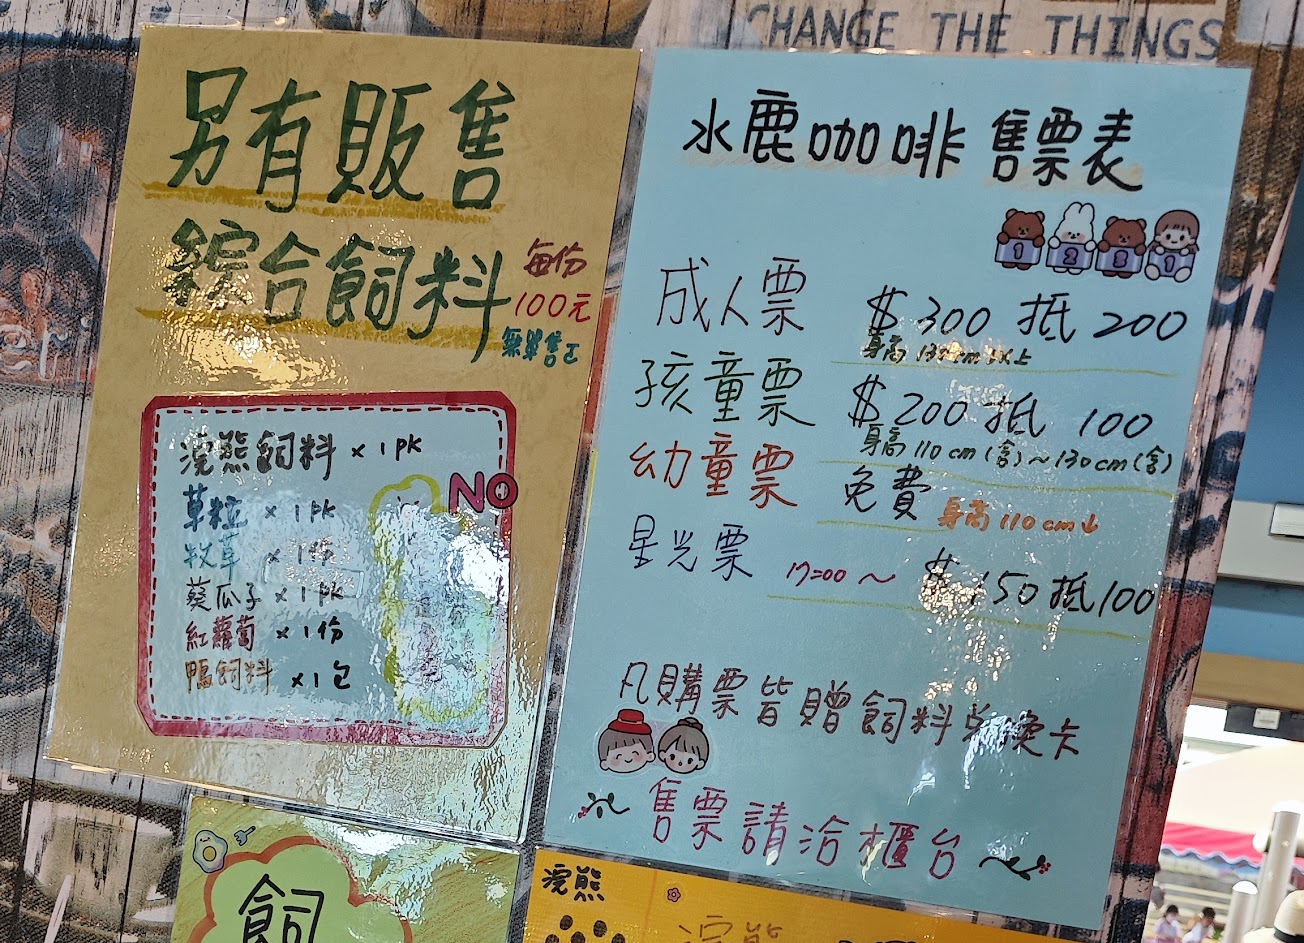 CHANGE THE THINGS
另有販售
綜合飼料
每份
100元
無單售
浣熊飼料 x 1 PK
草粒 x 1 PK
牧草 x 1份
葵瓜子 x 1 PK
紅蘿蔔 x 1份
鴨飼料 x 1包
NO
水鹿咖啡 售票表
1 2 3 1
成人票 $300 抵 200
身高 130cm 以上
孩童票 $200 抵 100
身高 110cm(含)~130cm(含)
幼童票 免費 身高 110cm↓
星光票 17:00 ~ $150 抵 100
凡購票皆贈飼料兌換卡
售票請洽櫃台
飼
浣熊
浣熊